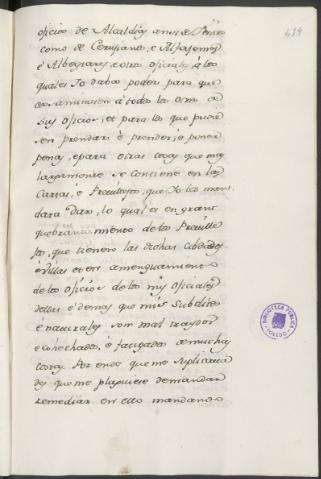 484
oficios de Alcaldias
como de Cerujanos, e Alfajemes,
e Albeytares e otros oficiales, a los
quales Yo daba poder para que
examinasen a todos los ome
sus oficios, et para los que pudie
sen prendar, e prender, e poner
penas, e para otras cosas que mas
largamente se contiene en las
Cartas, e Previllejos, que Yo les man
dara dar, lo qual es en grant
quebrantamiento de los Preville
jos, que tienen las dichas Cibdades
e Villas et en amenguamiento
de los oficios de los mis oficiales
dellas e demas que mis Subditos
e naturales son mal traydos
e cohechados, e fatigados a muchas
cosas. Por ende que me suplicaba
des que me plugiese de mandar
remediar en ello mandando
BIBLIOTECA PUBLICA
TOLEDO